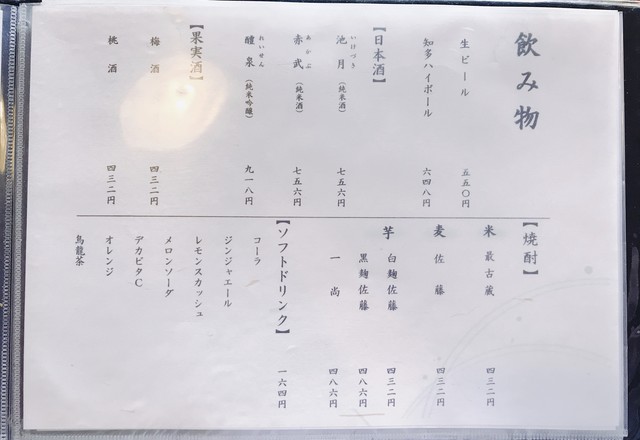 飲み物
生ビール 五五〇円
知多ハイボール 六四八円
【日本酒】
池月（純米酒） 七五六円
いけづき
赤武（純米酒） 七五六円
あかぶ
醴泉（純米吟醸） 九一八円
れいせん
【果実酒】
梅酒 四三二円
桃酒 四三二円
【焼酎】
米 最古蔵 四三二円
麦 佐藤 四三二円
芋 白麹佐藤 四三二円
黒麹佐藤 四八六円
一尚 四八六円
【ソフトドリンク】 一六四円
コーラ
ジンジャエール
レモンスカッシュ
メロンソーダ
デカビタC
オレンジ
烏龍茶